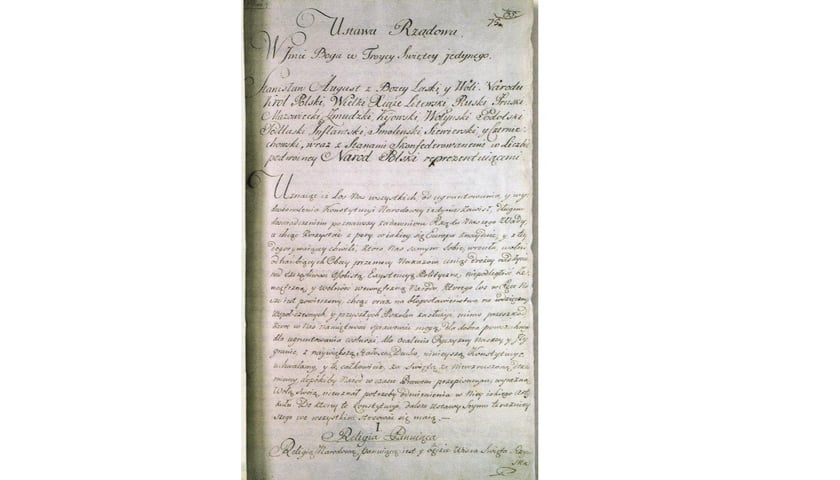 75
Ustawa Rządowa.
W Jmię Boga w Troycy Swiętey jedynego.
Stanisław August z Bożey Łaski y Woli Narodu
Krol Polski, Wielki Xiąże Litewski, Ruski, Pruski
Mazowiecki, Zmudzki, Kijowski, Wołynski, Podolski
Podlaski, Jnflantski, Smolenski, Siewierski, y Czernie-
chowski, wraz z Stanami Skonfederowanemi w Liczbie
podwoiney Narod Polski reprezentuiącemi
Uznaiąc iż Los Nas wszystkich, od ugruntowania y wy-
doskonalenia Konstytucyi Narodowey iedynie zawisł, długim
doswiadczeniem poznawszy zadawnione Rządu Naszego Wady,
a chcąc korzystać z pory w iakiey się Europa znayduie, y z tey
dogorywaiącey chwili, ktora Nas samym Sobie wrociła, wolni
od hanbiących Obcey przemocy Nakazow, ceniąc drożey nad życie,
nad szczęśliwość Osobistą, Exystencyą Polityczną, niepodległość ze-
wnętrzną, y wolność wewnętrzną Narodu, ktorego los w Ręce Na-
sze iest powierzony, chcąc oraz na błogosławieństwo, na wdzięczność
wspołczesnych y przyszłych Pokolen zasłużyć, mimo przeszkod,
ktore w Nas namiętności sprawować mogą, Dla dobra powszechnego,
dla ugruntowania wolności, dla ocalenia Oyczyzny Naszey y Jey
Granic, z naywiększą stałością Ducha, ninieyszą Konstytucyę
uchwalamy, y tę całkowicie za świętą, za Niewzruszoną dekla-
ruiemy, dopokiby Narod w czasie Prawem przepisanym, wyraźną
Wolą swoią, nieuznał potrzeby odmienienia w Niey iakiego Arty-
kułu. Do ktorey to Konstytucyi dalsze Ustawy Seymu teraźniey-
szego we wszystkim stosować się maią. —
I.
Religia Panuiąca
Religią Narodową Panuiącą iest y będzie Wiara Swięta Rzy-